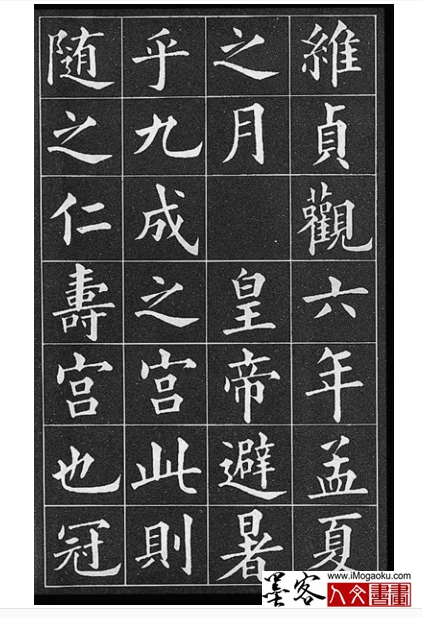 維貞觀六年孟夏
之月 皇帝避暑
乎九成之宮此則
随之仁壽宮也冠
墨客
www.iMogaoku.com
人文書畫